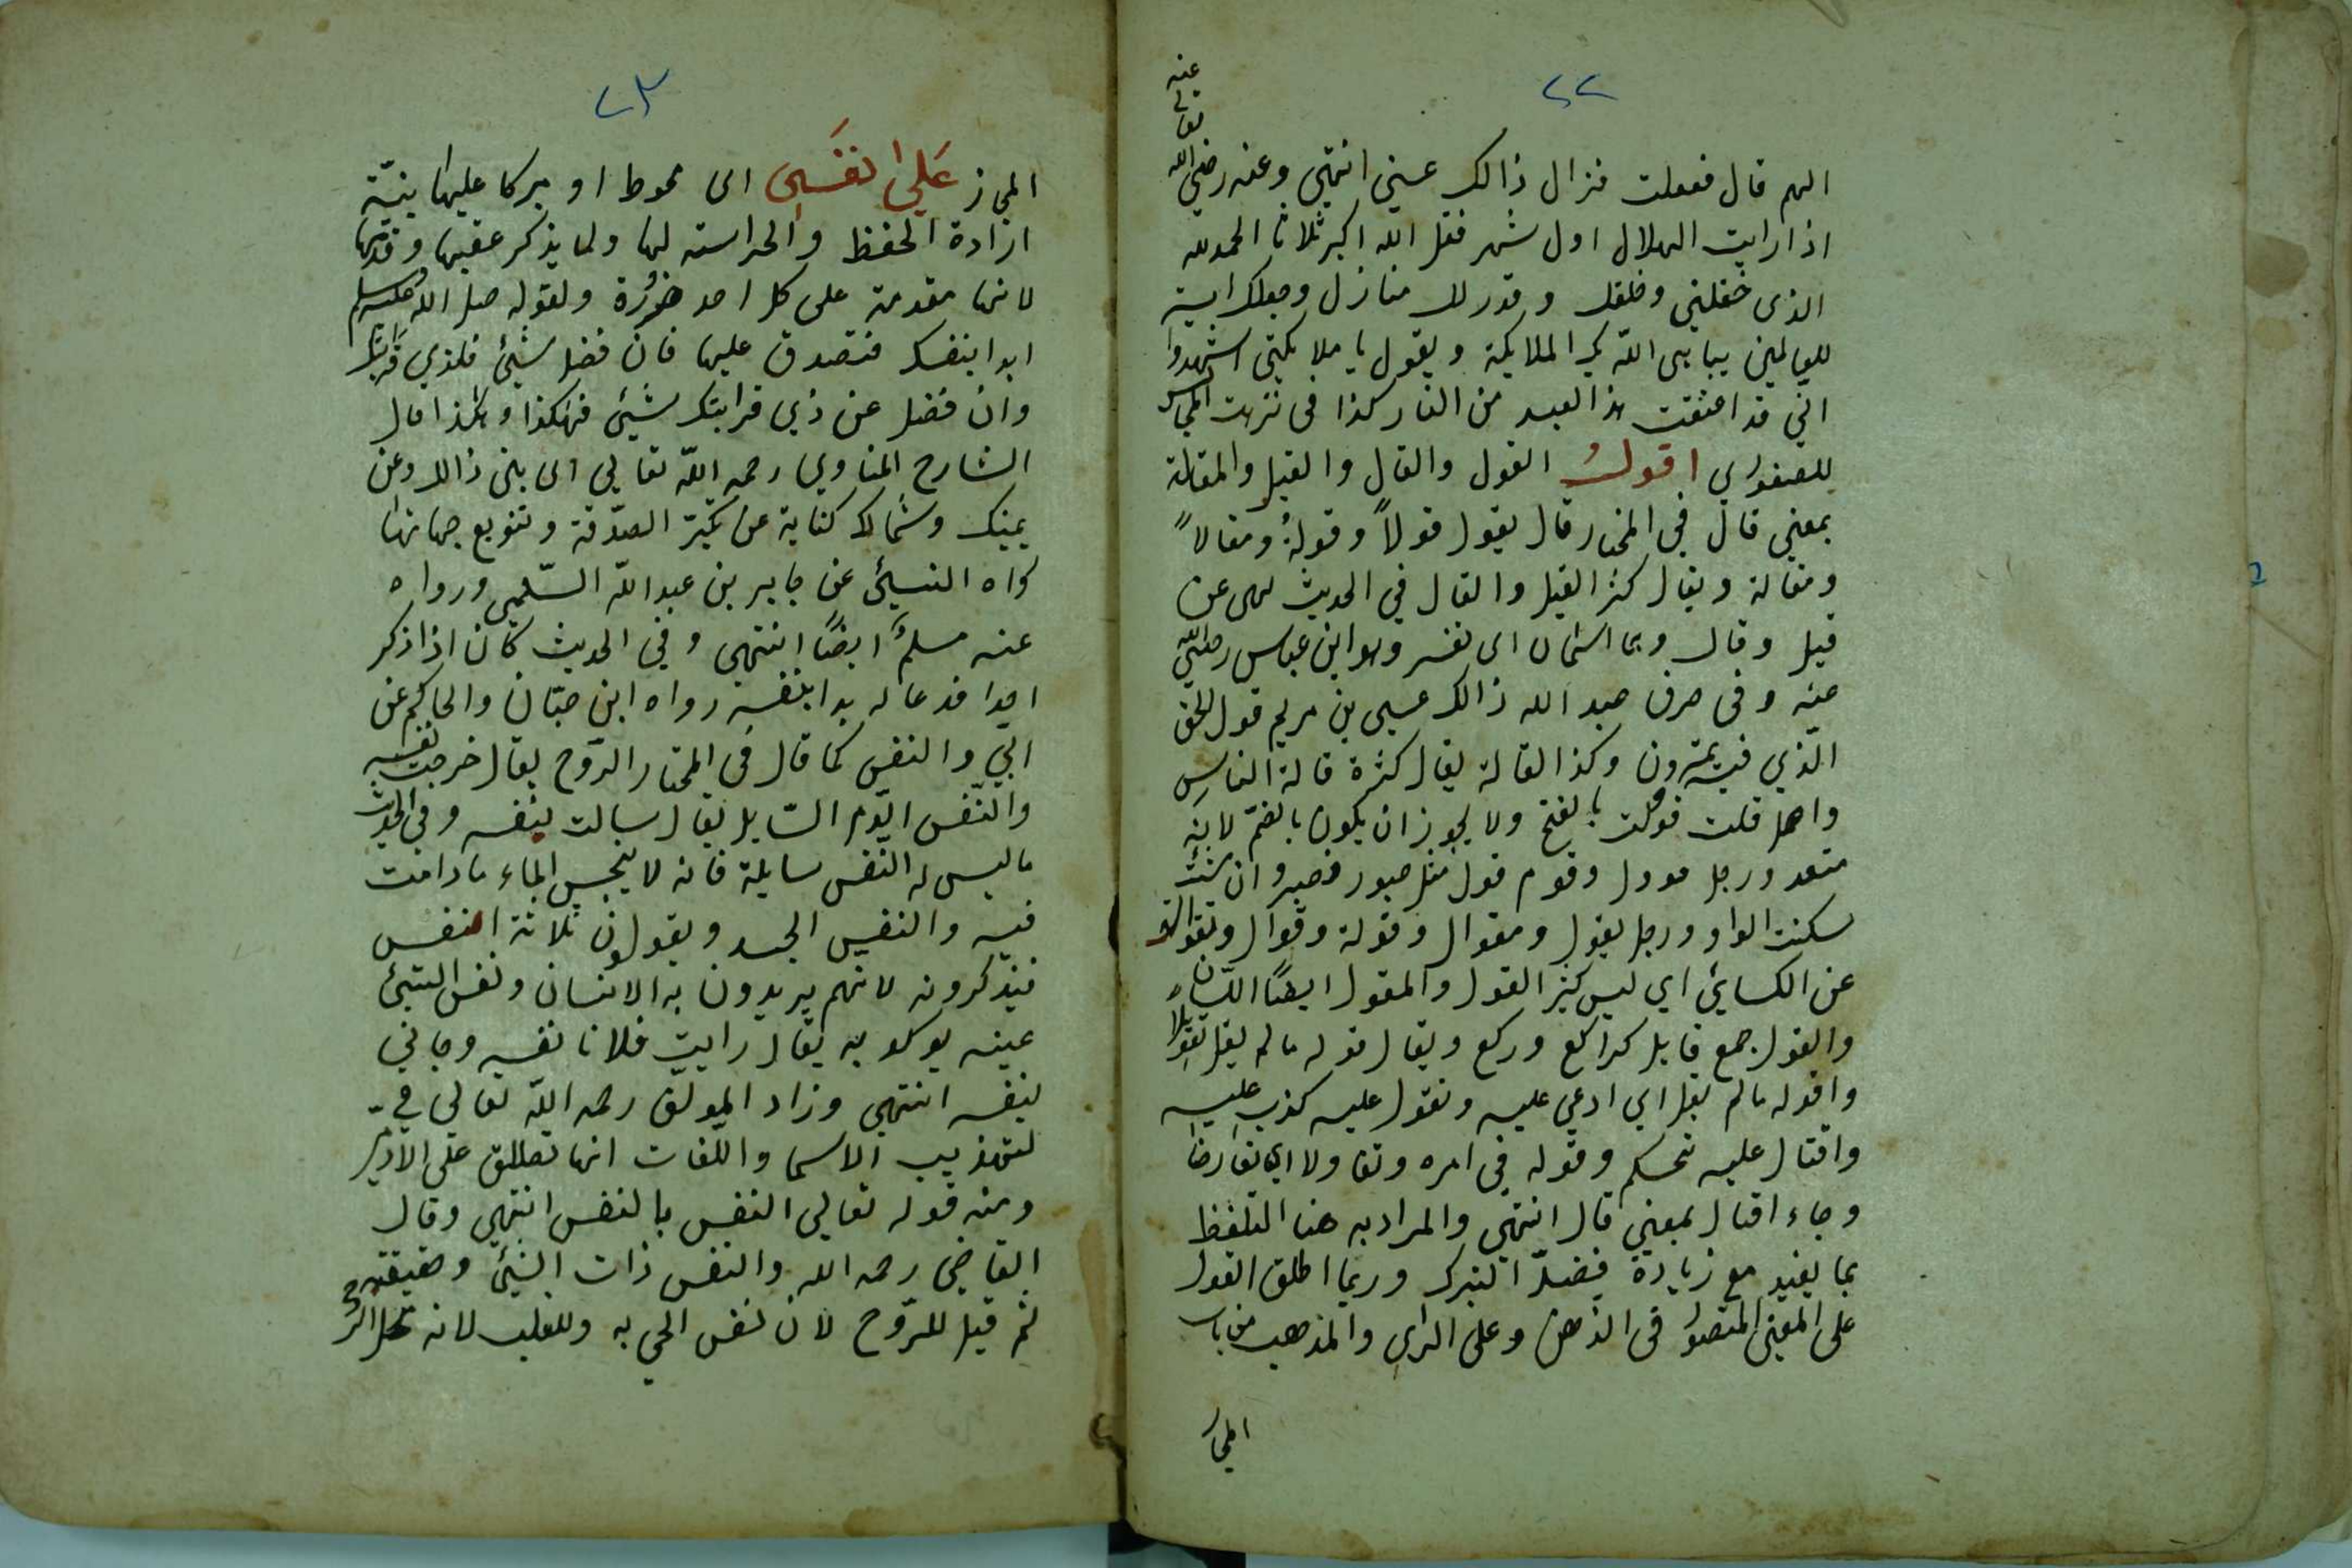 ٢٢
الهم قال ففعلت فزال ذالك عني انتهي وعنه رضي الله
تعالي عنه
اذا رايت الهلال اول شهر فقل الله اكبر ثلاثا الحمد لله
الذى خلقني وخلقك وقدر لك منازل وجعلك اية
للعالمين يباهى الله بك الملايكة ويقول يا ملايكتي اشهدوا
اني قد اعتقت هذا العبد من النار كذا فى نزهت المجالس
للصفوري اقول القول والقال والقيل والمقالة
بمعني قال في المختار قال يقول قولاً وقولة ومقالاً
ومقالة ويقال كثر القيل والقال في الحديث نهى عن
قيل وقال وهما اسمان اى نفسر وهو ابن عباس رضي الله
عنه وفى حرف عبد الله ذالك عيسى بن مريم قول الحق
الذي فيه يمترون وكذا القالة يقال كثرة قالة الناس
واصل قلت قولت بالفتح ولا يجوز ان يكون بالضم لانه
متعد ورجل قوول وقوم قول مثل صبور وصبر وان شئت
سكنت الواو ورجل يقول ومقوال وقولة وقوال وتقوالة
عن الكسائي اي ليس كثير القول والمقول ايضاً اللسان
والقول جمع قايل كراكع وركع ويقال قوله ما لم يقل تقويلا
واقوله مالم يقل اي ادعي عليه وتقول عليه كذب عليه
واقتال عليه تحكم وقوله في امره وتقاولا اي تفاوضا
وجاء اقتال بمعني قال انتهي والمراد به هنا التلفظ
بما يفيد مع زيادة فضل التبرك وربما اطلق القول
على المعنى المتصور فى الذهن وعلى الراي والمذهب من باب
المجاز
٢٣
المجاز عَلي نفسَي اى محوط او بركا عليها بنيّة
ارادة الحفظ والحراسته لها ولما يذكر عقبها وقدمها
لانها مقدمة على كل احد ضرورة ولقوله صل الله عليه وسلم
ابدا بنفسك فتصدق عليها فان فضل شيئ فلذي قرابتك
وان فضل عن ذي قرابتك شيئ فهكذا وهكذا قال
الشارح المناوي رحمه الله تعالي اى بين ذالك وعن
يمينك وشمالك كناية عن تكثير الصدقة وتنويع جهاتها
رواه النسيئ عن جابر بن عبد الله السّلمي ورواه
عنه مسلم ايضاً انتهي وفي الحديث كان اذا ذكر
احدا فدعا له بدا بنفسه رواه ابن حبّان والحاكم عن
ابي والنفس كما قال في المختار الروح يقال خرجت نفسه
والنّفس الدّم السّايل يقال سالت نفسه وفي الحديث
ماليس له النفس سايلة فانه لا ينجس الماء مادامت
فيه والنفس الجسد ويقولون ثلاثة انفس
فيذكرونه لانهم يريدون به الانسان ونفس الشيئ
عينه يوكد به يقال رايت فلانا نفسه وجاني
بنفسه انتهي وزاد المولف رحمه الله تعالى في
لتهذيب الاسما واللّغات انها تطلق على الآدمي
ومنه قوله تعالي النفس بالنفس انتهي وقال
القاضي رحمه الله والنفس ذات الشيئ وحقيقته
ثم قيل للرّوح لان نفس الحي به وللقلب لانه محل الروح